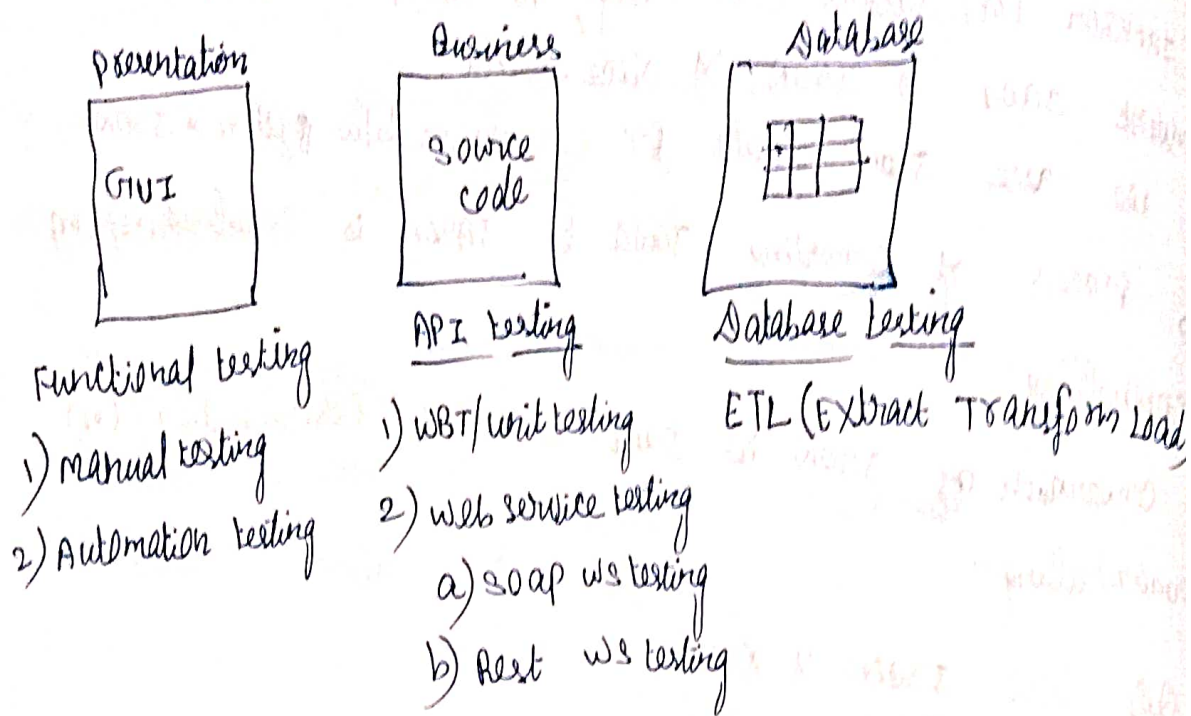 presentation
GUI
Functional testing
1) manual testing
2) Automation testing
Business
source
code
API testing
1) WBT/unit testing
2) web service testing
a) SOAP WS testing
b) Rest WS testing
Database
Database testing
ETL (Extract Transform Load)